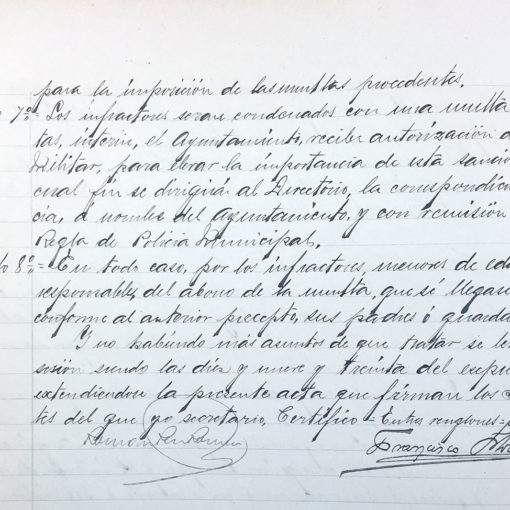 para la imposición de las multas procedentes.
o 7º.- Los infractores seran condenados con una multa
tas, interin, el Ayuntamiento, recibe autorización d
Militar, para elevar la importancia de esta sanció
cual fin se dirigirá al Directorio, la correspondien
cia, á nombre del Ayuntamiento, y con remisión
Regla de Policia Municipal.
lo 8º.- En todo caso, por los infractores, menores de eda
responsables, del abono de la multa, que sé llegase
conforme al anterior precepto, sus padres ó guarda
Y no habiendo más asuntos de que tratar se le
sesión siendo las diez y nueve y treinta del
extendiendose la presente acta que firman los
tes del que yo secretario, Certifico = Entre renglones =
Ramón
Francisco